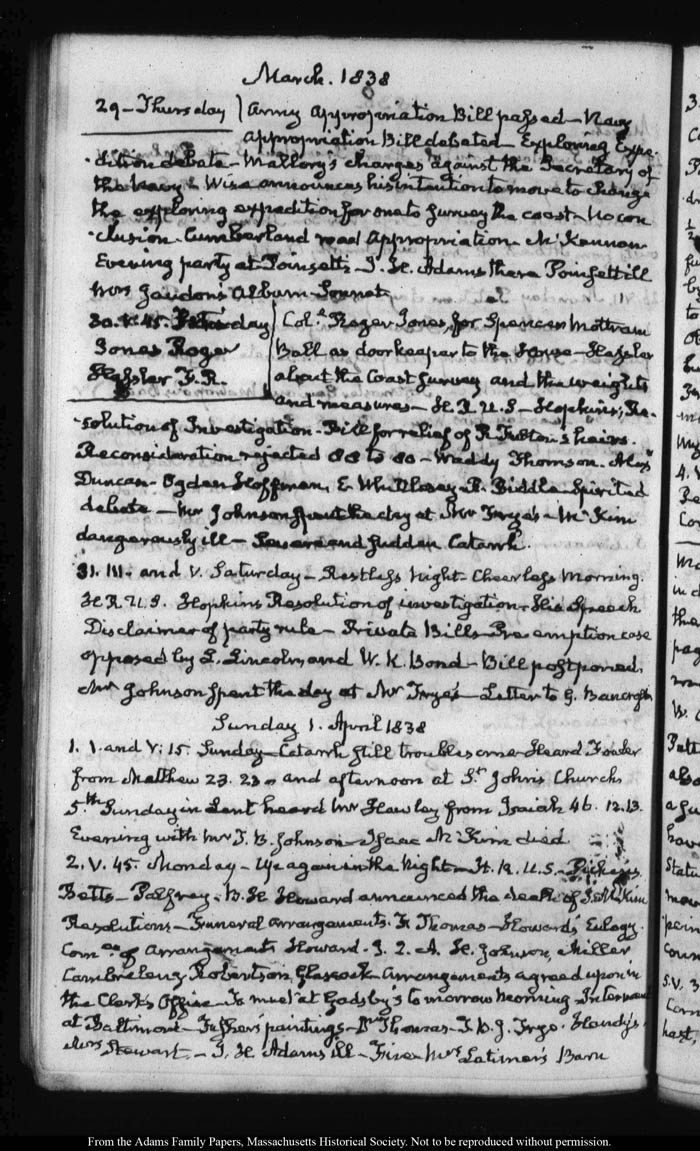 March. 1838
29 – Thursday Army Appropriation Bill passed – Navy
Appropriation Bill debated – Exploring Expe-
-dition debate – Mallory's charges against the Secretary of
the Navy – Wise announces his intention to move to change
the exploring expedition for one to survey the coast – No con
-clusion. Cumberland road Appropriation – McKennan
Evening party at Poinsett's – I. H. Adams there Poinsett ill
Mrs Album – Sonnet
30. V. 45. Friday Col. Roger Jones, for Spencer Mottram
Jones Roger Ball as doorkeeper to the House – Hassler
Hassler F. R. about the Coast Survey and the weights
and measures – H. R. U. S – Hopkins's Re-
-solution of Investigation – Bill for relief of R. Fulton's heirs.
Reconsideration rejected to 80 – Waddy Thomson. Alex
Duncan – Ogden Hoffman, E Whittlesey – R. Biddle Spirited
debate – Mr Johnson spent the day at Mr Frye's – McKim
dangerously ill – Severe and sudden Catarrh.
31. III. and V. Saturday – Restless Night – Cheerless Morning.
H. R. U. S. Hopkins Resolution of investigation – His Speech
Disclaimer of party rule – Private Bills – Pre emption case
opposed by L. Lincoln, and W. K. Bond – Bill postponed.
Mr Johnson spent the day at Mr Frye's – Letter to G. Bancroft
Sunday 1. April 1838
1. V. and V: 15. Sunday – Catarrh still troublesome – Heard Fowler
from Matthew 23. 23 – and afternoon at St. John's Church
5.th Sunday in Lent heard Mr Hawley from Isaiah 46. 12.13.
Evening with Mr T. B. Johnson – Isaac McKim died
2. V. 45. Monday – Up again in the Night – H. R. U. S. – Pickens
Betts – Palfrey – B. H Howard announced the death of I. McKim
Resolutions – Funeral arrangements. F. Thomas – Howard's Eulogy.
Comee of arrangements Howard. J. Q. A. H. Johnson, Miller
Cambreleng Robertson, Glascock – Arrangements agreed upon in
the Clerk's Office – To meet at Gadsby's to morrow Morning Interment
at Baltimore – paintings – Dr Thomas – T. B. J. Frye.
Mrs Stewart – I. H Adams ill – Fire – Mrs Latimer's Barn
From the Adams Family Papers, Massachusetts Historical Society. Not to be reproduced without permission.